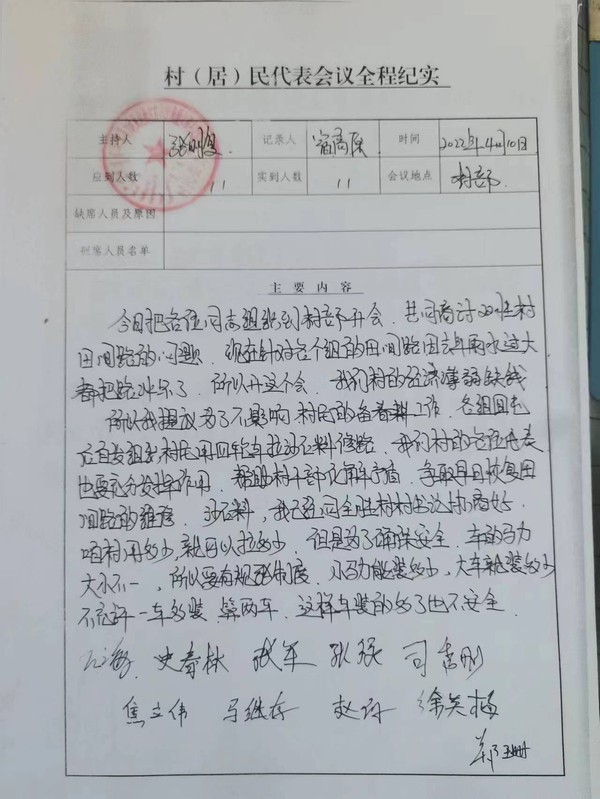 村（居）民代表会议全程纪实
主持人 记录人 时间 2022年4月10日
应到人数 11 实到人数 11 会议地点 村部
缺席人员及原因
列席人员名单
主要内容
今日把各位同志组织到村部开会，共同商讨
田间路的问题，现在针对各个组的田间路因去年雨水过大
都把路冲坏了，所以开这个会，我们村的经济薄弱缺钱
所以我提议为了不影响村民的备春耕工作，各组回屯
后自发组织村民用四轮车拉沙石料修路，我们村的各位代表
也要充分发挥作用，帮助村干部化解矛盾，争取早日恢复田
间路的维修，沙石料，我已经同全胜村村书记协商好
咱村用多少，就可以拉多少，但是为了确保安全，车的马力
大小不一，所以要有规范制度，小马力能装多少，大车能装多少
不允许一车多装算两车，这样车装的多了也不安全
史春林 张军 张强 司雪刚
焦立伟 马继存 徐英梅